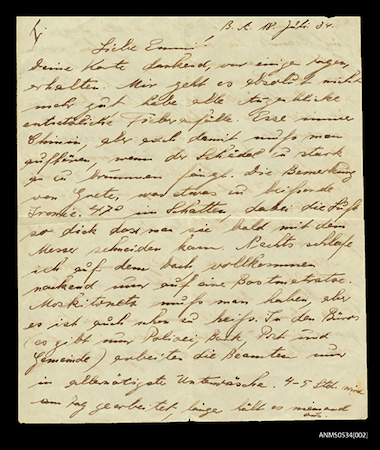 B. A. 18. Juli 34.
Liebe Emmi!
Deine Karte dankend, vor einige Tagen,
erhalten. Mir geht es absolut nicht
mehr gut habe alle Augenblicke
entsetzliche Fieberanfälle. Esse immer
Chinin, aber auch damit muss man
aufhören, wenn der Schädel zu stark
zu brummen fängt. Die Bemerkung
von Grete, war etwas zu beissende
Ironie. 47º im Schatten, dabei die Luft
so dick dass man sie bald mit dem
Messer schneiden kann. Nachts schlafe
ich auf dem Dach vollkommen
nackend nur auf eine Bastmatratze.
Moskitonetz muss man haben, aber
es ist auch schon zu heiss. In den Büros
(es gibt nur Polizei Bank, Post und
Gemeinde) arbeiten die Beamten nur
in allernötigste Unterwäsche. 4-5 Std. wird
am Tag gearbeitet, länge hält es niemand
aus.
ANMS0534[002]